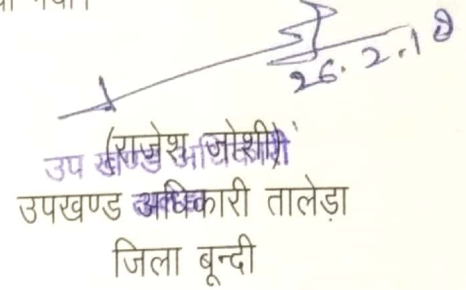 26.2.18
(राजेश जोशी)
उप खण्ड अधिकारी
उपखण्ड अधिकारी तालेड़ा
जिला बून्दी